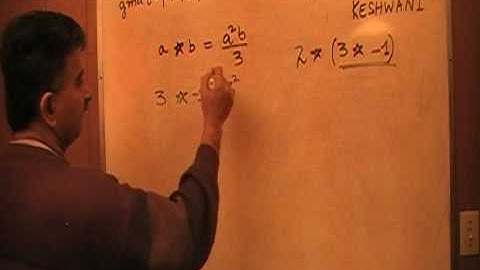 KESHWANI
a ★ b = a²b/3
2 ★ (3 ★ -1)
3 ★